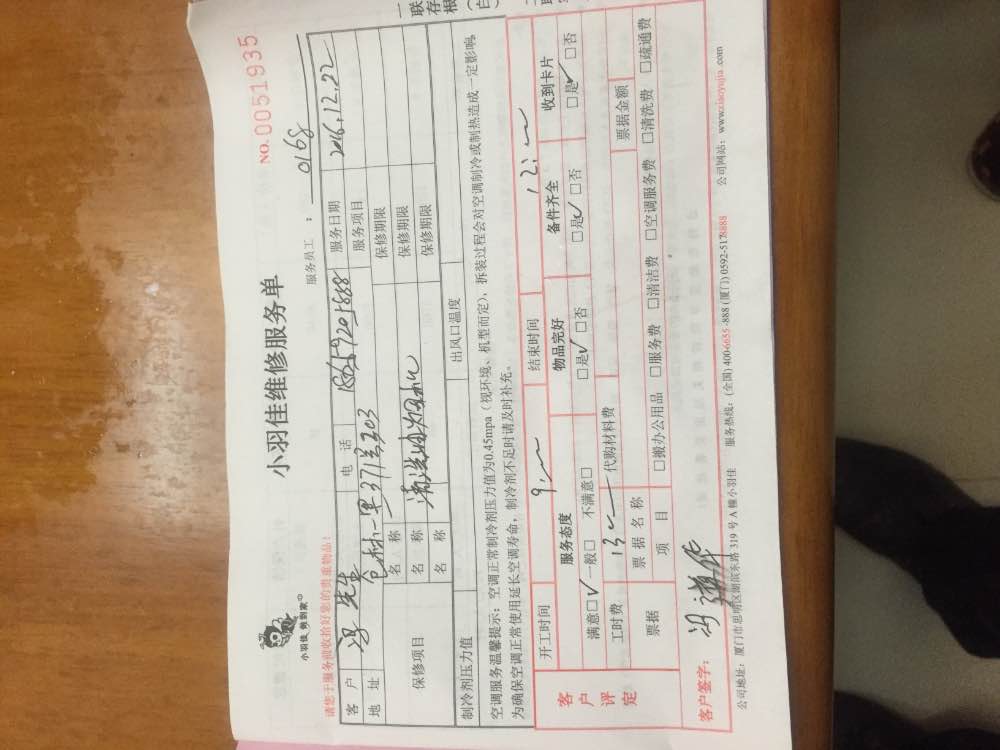 一联存根(白
NO.0051935
小羽佳维修服务单
小羽佳 例到家
服务员工：0168
请您于服务前收拾好您的贵重物品！
客户 冯先生 电话 服务日期 2016.12.22
地址 服务项目
保修项目 名称 保修期限
名称 清洗 保修期限
名称 保修期限
制冷剂压力值 出风口温度
空调服务温馨提示：空调正常制冷剂压力值为0.45mpa（视环境、机型而定），拆装过程会对空调制冷或制热造成一定影响，
为确保空调正常使用延长空调寿命，制冷剂不足时请及时补充。
客户评定
开工时间 9: 结束时间 12:
服务态度 物品完好 备件齐全 收到卡片
满意□✓ 一般□ 不满意□ □是✓ □否 □是✓ □否 □是✓ □否
工时费 代购材料费
票据 票据名称 票据金额
项目 □搬办公用品 □服务费 □清洁费 □空调服务费 □清洗费 □疏通费
客户签字：
公司地址：厦门市思明区湖滨东路 319 号 A 幢小羽佳 服务热线：(全国) 400-6655-888 (厦门) 0592-5178888 公司网站：www.xiaoyujia.com